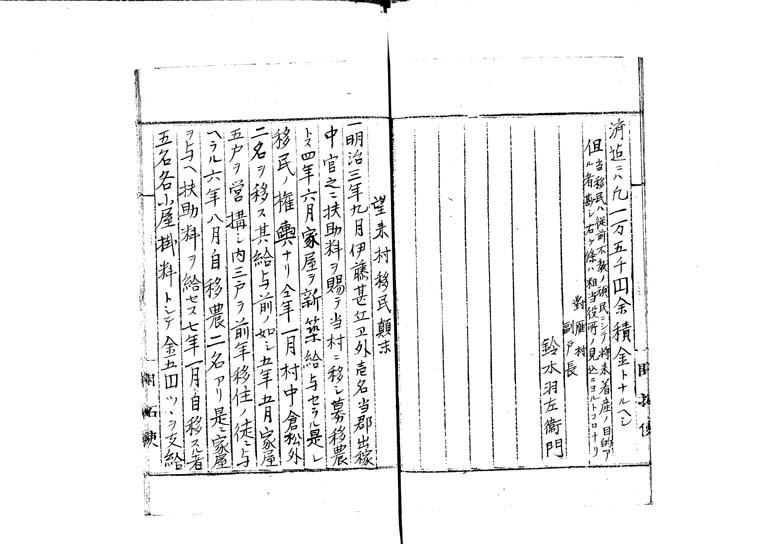 済迠ニハ凡一万五千円余積金トナルヘシ
但当移民ハ従前不教ノ頑民ニシテ将来着産ノ目的ア
ル者尠シ右ケ條ハ粗当役所ノ見込ニヨルトコロナリ
對雁村
副戸長
鈴木羽左衛門
開拓使
望来村移民顛末
一明治三年九月伊藤甚立卫外壱名当郡出稼
中官之ニ扶助料ヲ賜テ当村ニ移シ募移農
トス四年六月家屋ヲ新築給与セラル是レ
移民ノ権輿ナリ仝年一月村中倉松外
二名ヲ移ス其給与前ノ如シ五年五月家屋
五戸ヲ営搆シ内三戸ヲ前年移住ノ徒ニ与
ヘラル六年八月自移農二名アリ是ニ家屋
ヲ与ヘ扶助料ヲ給セス七年一月自移スル者
五名各小屋掛料トシテ金五円ツヽヲ支給
開拓使